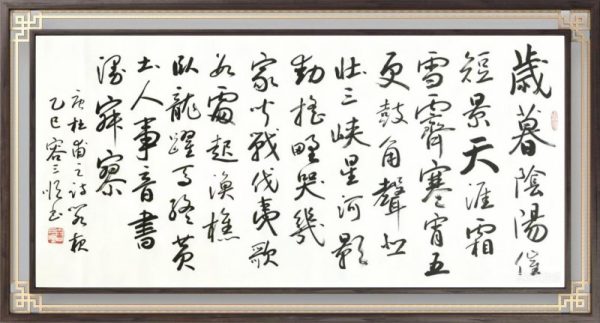 歲暮陰陽催
短景天涯霜
雪霽寒宵五
更鼓角聲悲
壯三峽星河影
動搖野哭幾
家聞戰伐夷歌
數處起漁樵
臥龍躍馬終黃
土人事音書
漫寂寥
唐杜甫之詩閣夜
乙巳